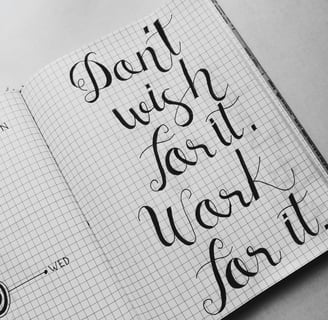 N
WED
Don't
wish
for it.
Work
for it.